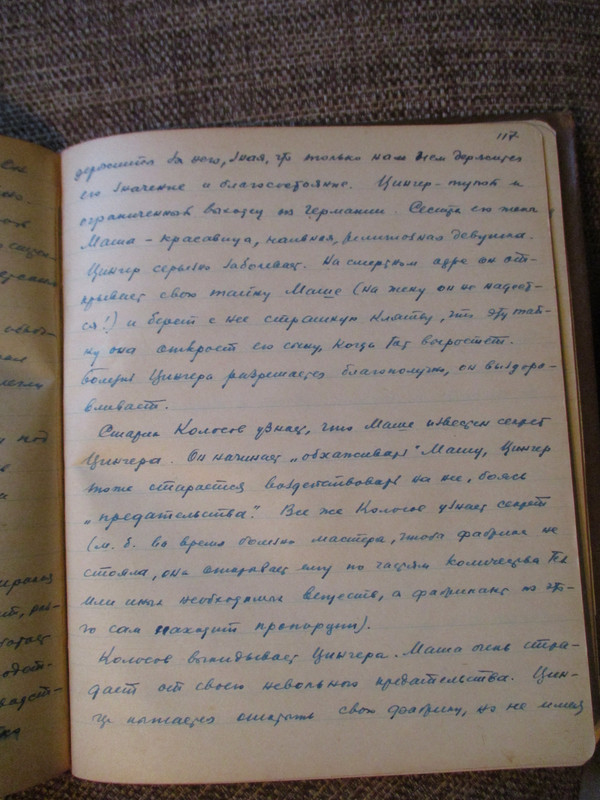 117.
держится за него, зная, что только на нем держится
его значение и благосостояние. Цингер – тупой и
ограниченной выходец из Германии. Сестра его жены
Маша – красавица, наивная, религиозная девушка.
Цингер серьезно заболевает. На смертном одре он от-
крывает свою тайну Маше (на жену он не надеет-
ся!) и берет с нее страшную клятву, что эту тай-
ну она откроет его сыну, когда тот вырастет.
Болезнь Цингера разрешается благополучно, он выздора-
вливает.
Старик Колосов узнает, что Маше известен секрет
Цингера. Он начинает „обхаживать" Машу, Цингер
тоже старается воздействовать на нее, боясь
„предательства". Все же Колосов узнает секрет
(м. б. во время болезни мастера, чтобы фабрика не
стояла, она открывает ему по частям количества тех
или иных необходимых веществ, а фабрикант из это-
го сам находит пропорции).
Колосов выкидывает Цингера. Маша очень стра-
дает от своего невольного предательства. Цин-
гер пытается открыть свою фабрику, но не имея
Он
под